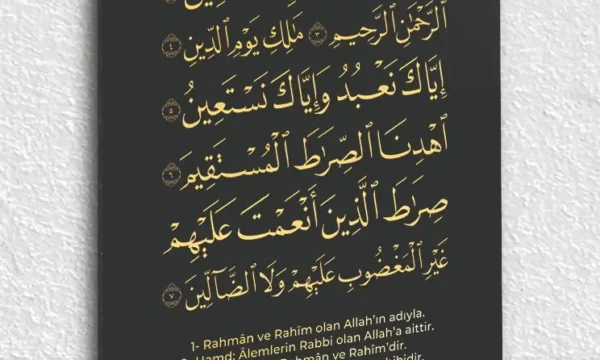 ٱلرَّحْمَٰنِ ٱلرَّحِيمِ ٣ مَٰلِكِ يَوْمِ ٱلدِّينِ ٤
إِيَّاكَ نَعْبُدُ وَإِيَّاكَ نَسْتَعِينُ ٥
ٱهْدِنَا ٱلصِّرَٰطَ ٱلْمُسْتَقِيمَ ٦
صِرَٰطَ ٱلَّذِينَ أَنْعَمْتَ عَلَيْهِمْ
غَيْرِ ٱلْمَغْضُوبِ عَلَيْهِمْ وَلَا ٱلضَّآلِّينَ ٧
1- Rahmân ve Rahîm olan Allah'ın adıyla.
Hamd; Âlemlerin Rabbi olan Allah'a aittir.
Rahmân ve Rahîm'dir.